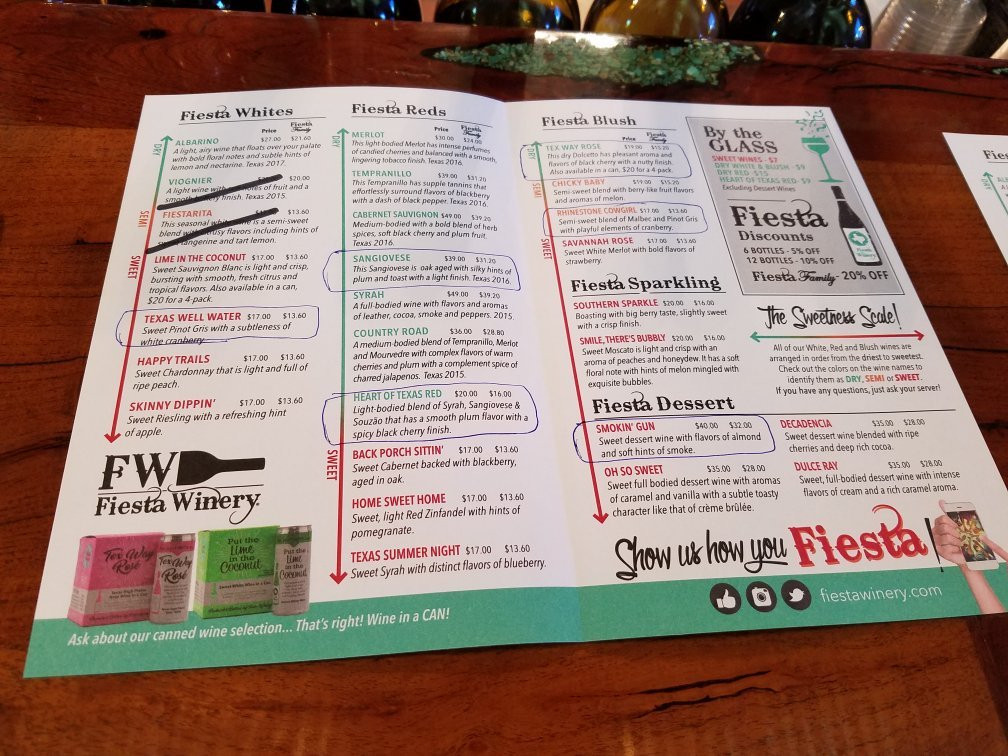 Fiesta Whites
Price Fiesta Family
DRY
ALBARINO $27.00 $21.60
A light, airy wine that floats over your palate
with bold floral notes and subtle hints of
lemon and nectarine. Texas 2017.
VIOGNIER $20.00
A light wine with notes of fruit and a
smooth finish. Texas 2015.
SEMI
FIESTARITA $13.60
This seasonal white wine is a semi-sweet
blend with citrusy flavors including hints of
tangerine and tart lemon.
SWEET
LIME IN THE COCONUT $17.00 $13.60
Sweet Sauvignon Blanc is light and crisp,
bursting with smooth, fresh citrus and
tropical flavors. Also available in a can,
$20 for a 4-pack.
TEXAS WELL WATER $17.00 $13.60
Sweet Pinot Gris with a subtleness of
white cranberry.
HAPPY TRAILS $17.00 $13.60
Sweet Chardonnay that is light and full of
ripe peach.
SKINNY DIPPIN' $17.00 $13.60
Sweet Riesling with a refreshing hint
of apple.
FW
Fiesta Winery
Tex Way
Rosé
Tex Way
Rosé
Put the
Lime
in the
Coconut
Put the
Lime
in the
Coconut
Ask about our canned wine selection... That's right! Wine in a CAN!
Fiesta Reds
Price Fiesta Family
DRY
MERLOT $30.00 $24.00
This light bodied Merlot has intense perfumes
of candied cherries and balanced with a smooth,
lingering tobacco finish. Texas 2016.
TEMPRANILLO $39.00 $31.20
This Tempranillo has supple tannins that
effortlessly surround flavors of blackberry
with a dash of black pepper. Texas 2016.
CABERNET SAUVIGNON $49.00 $39.20
Medium-bodied with a bold blend of herb
spices, soft black cherry and plum fruit.
Texas 2016.
SANGIOVESE $39.00 $31.20
This Sangiovese is oak aged with silky hints of
plum and toast with a light finish. Texas 2016.
SYRAH $49.00 $39.20
A full-bodied wine with flavors and aromas
of leather, cocoa, smoke and peppers. 2015.
COUNTRY ROAD $36.00 $28.80
A medium-bodied blend of Tempranillo, Merlot
and Mourvedre with complex flavors of warm
cherries and plum with a complement spice of
charred jalapenos. Texas 2015.
HEART OF TEXAS RED $20.00 $16.00
Light-bodied blend of Syrah, Sangiovese &
Souzão that has a smooth plum flavor with a
spicy black cherry finish.
SWEET
BACK PORCH SITTIN' $17.00 $13.60
Sweet Cabernet backed with blackberry,
aged in oak.
HOME SWEET HOME $17.00 $13.60
Sweet, light Red Zinfandel with hints of
pomegranate.
TEXAS SUMMER NIGHT $17.00 $13.60
Sweet Syrah with distinct flavors of blueberry.
Fiesta Blush
Price Fiesta Family
DRY
TEX WAY ROSE $19.00 $15.20
This dry Dolcetto has pleasant aroma and
flavors of black cherry with a nutty finish.
Also available in a can, $20 for a 4-pack.
SEMI
CHICKY BABY $19.00 $15.20
Semi-sweet blend with berry like fruit flavors
and aromas of melon.
RHINESTONE COWGIRL $17.00 $13.60
Semi-sweet blend of Malbec and Pinot Gris
with playful elements of cranberry.
SWEET
SAVANNAH ROSE $17.00 $13.60
Sweet White Merlot with bold flavors of
strawberry.
Fiesta Sparkling
SOUTHERN SPARKLE $20.00 $16.00
Boasting with big berry taste, slightly sweet
with a crisp finish.
SMILE, THERE'S BUBBLY $20.00 $16.00
Sweet Moscato is light and crisp with an
aroma of peaches and honeydew. It has a soft
floral note with hints of melon mingled with
exquisite bubbles.
Fiesta Dessert
SMOKIN' GUN $40.00 $32.00
Sweet dessert wine with flavors of almond
and soft hints of smoke.
OH SO SWEET $35.00 $28.00
Sweet full bodied dessert wine with aromas
of caramel and vanilla with a subtle toasty
character like that of crème brûlée.
DECADENCIA $35.00 $28.00
Sweet dessert wine blended with ripe
cherries and deep rich cocoa.
DULCE RAY $35.00 $28.00
Sweet, full-bodied dessert wine with intense
flavors of cream and a rich caramel aroma.
By the
GLASS
SWEET WINES - $7
DRY WHITE & BLUSH - $9
DRY RED - $15
HEART OF TEXAS RED - $9
Excluding Dessert Wines
Fiesta
Discounts
6 BOTTLES - 5% OFF
12 BOTTLES - 10% OFF
Fiesta Family - 20% OFF
The Sweetness Scale!
All of our White, Red and Blush wines are
arranged in order from the driest to sweetest.
Check out the colors on the wine names to
identify them as DRY, SEMI or SWEET.
If you have any questions, just ask your server!
Show us how you Fiesta
fiestawinery.com